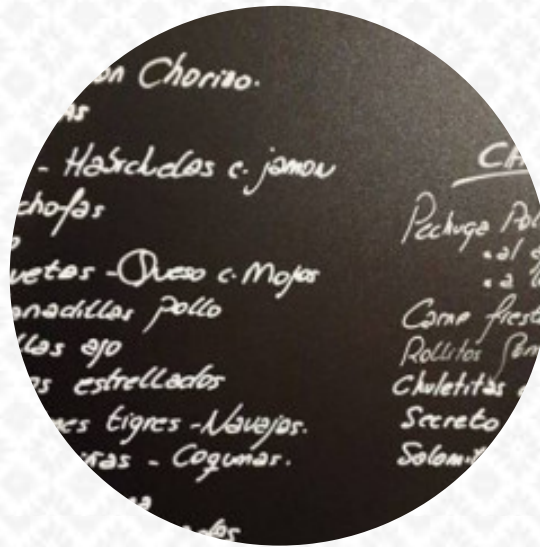 on Chorizo.
as
- Habichelas c. jamon
chofas
o
uetas - Queso c. Mojos
anadillas pollo
llas ajo
os estrellados
nes tigres - Navajas.
ñas - Coquinas.
na
ados
CA
Pechuga Pol
• al
• a l
Carne fiest
Rollitos Prim
Chuletitas
Secreto
Solom